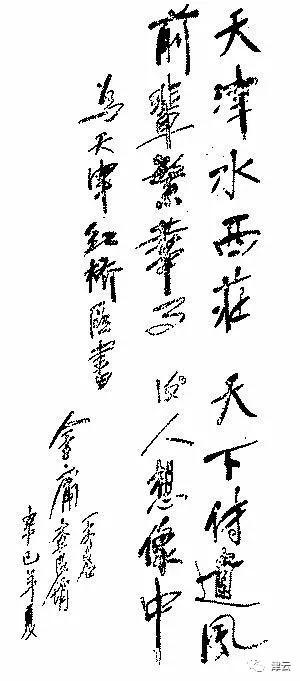 天津水西莊 天下傳遺風
前輩繁華 後人想像中
為天津紅桥區書
金庸 查良鏞
辛巳年夏
津云